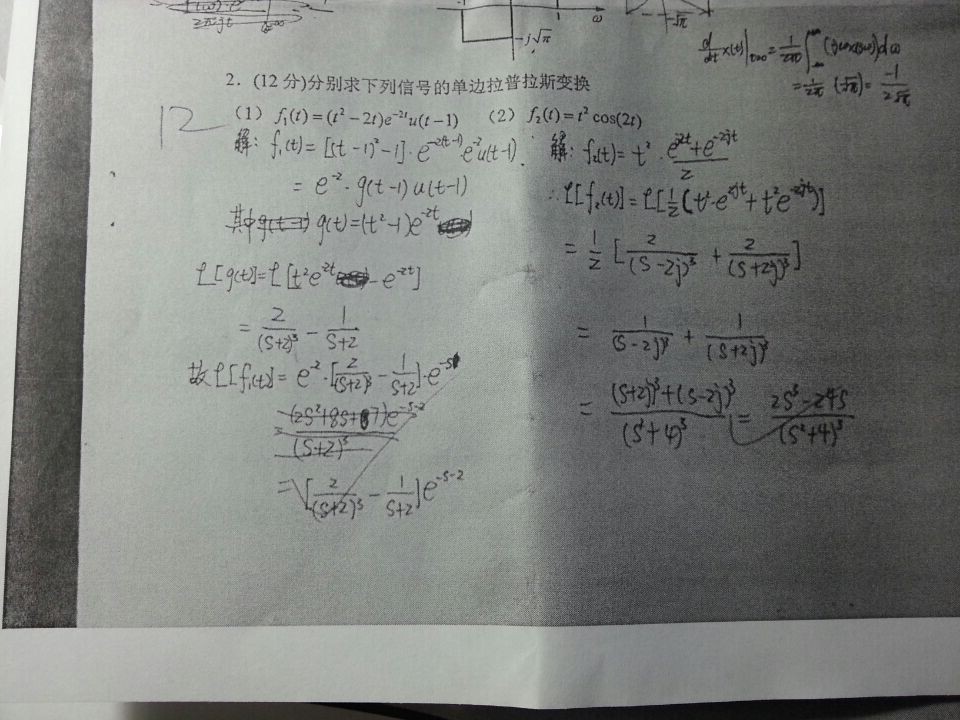 2πjt
ω
-j√π
-√π
d/dt x(t)|t=0 = 1/2π ∫ (jωx(jω))dω
= 1/2π (√π) = -1/2√π
2. (12 分)分别求下列信号的单边拉普拉斯变换
12
(1) f₁(t) = (t² − 2t)e⁻²ᵗu(t−1) (2) f₂(t) = t² cos(2t)
解: f₁(t) = [(t-1)²-1]·e^{-2(t-1)}e⁻²u(t-1)
= e⁻²·g(t-1)u(t-1)
其中 g(t)=(t²-1)e^{-2t}
L[g(t)]=L[t²e^{-2t} - e^{-2t}]
= 2/(S+2)³ - 1/(S+2)
故L[f₁(t)] = e⁻²·[2/(S+2)³ - 1/(S+2)]·e^{-S}
= (2S²+8S+7)e^{-S-2}/(S+2)³
= [2/(S+2)³ - 1/(S+2)]e^{-S-2}
解: f₂(t) = t²·(e^{j2t}+e^{-2jt})/2
∴ L[f₂(t)] = L[½(t²·e^{2jt}+t²e^{-2jt})]
= ½[2/(S-2j)³ + 2/(S+2j)³]
= 1/(S-2j)³ + 1/(S+2j)³
= ((S+2j)³+(S-2j)³)/(S²+4)³ = (2S³-24S)/(S²+4)³